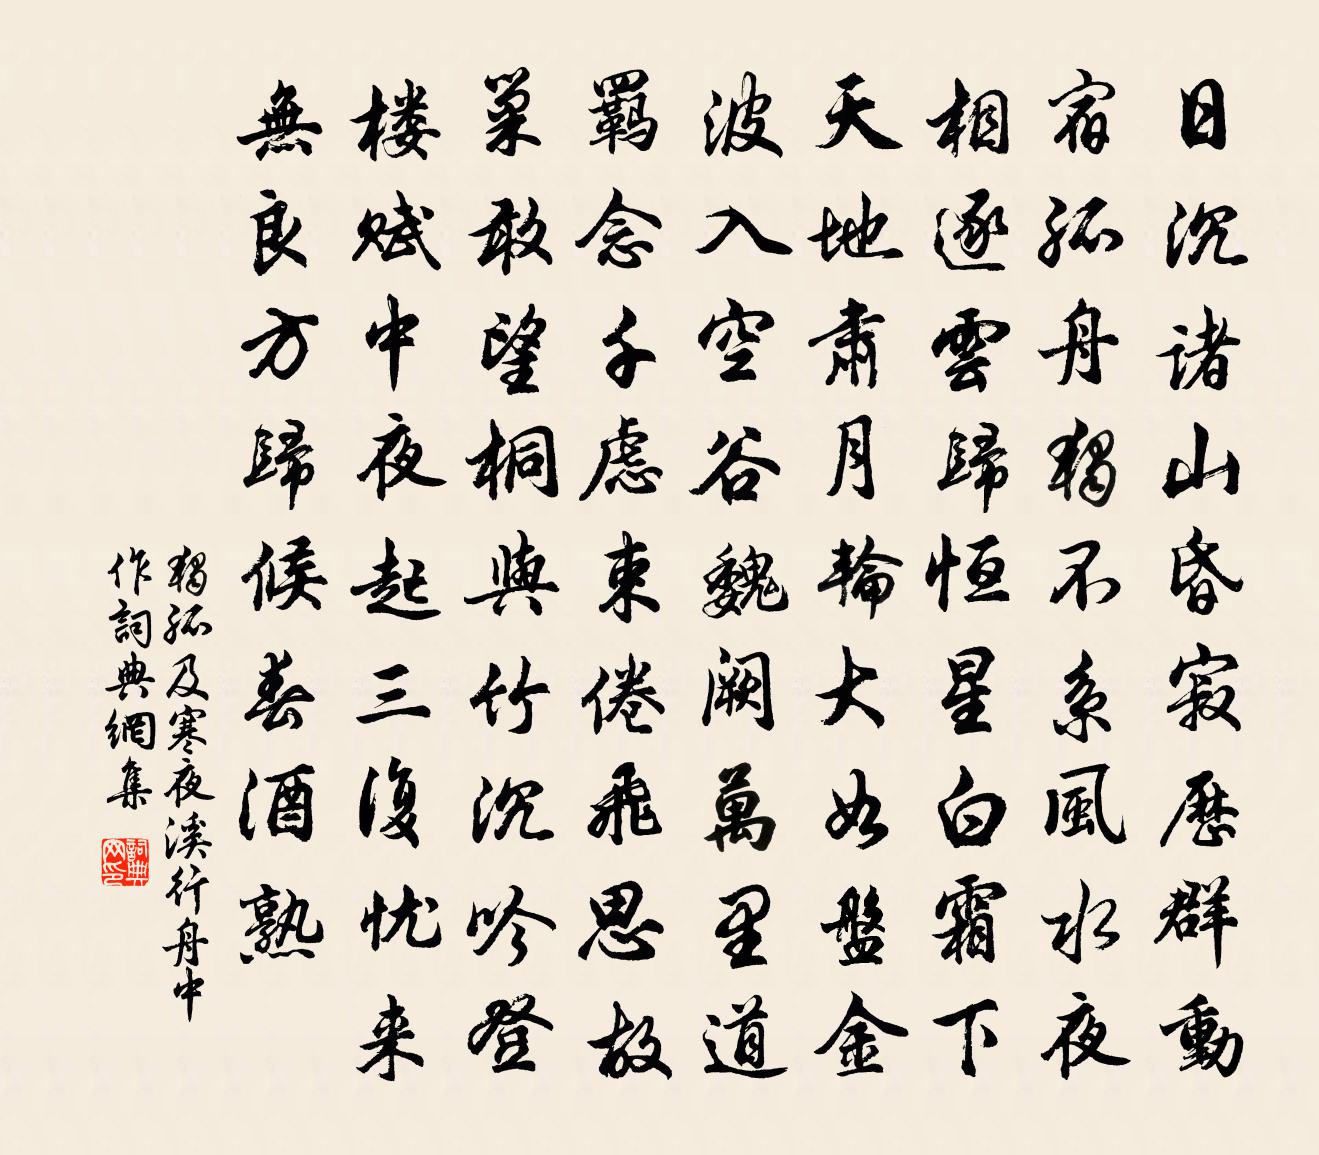 日沉諸山昏寂歷群動
宿孤舟獨不系風水夜
相逐雲歸恒星白霜下
天地肅月輪大如盤金
波入空谷魏闕萬里道
羈念千慮束倦飛思故
巢敢望桐與竹沉吟登
楼赋中夜起三復忧来
無良方歸候春酒熟
獨孤及寒夜溪行舟中
作詞典網集
詞典网印